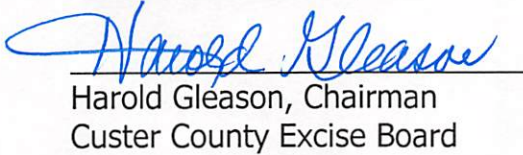 Harold Gleason
Harold Gleason, Chairman
Custer County Excise Board